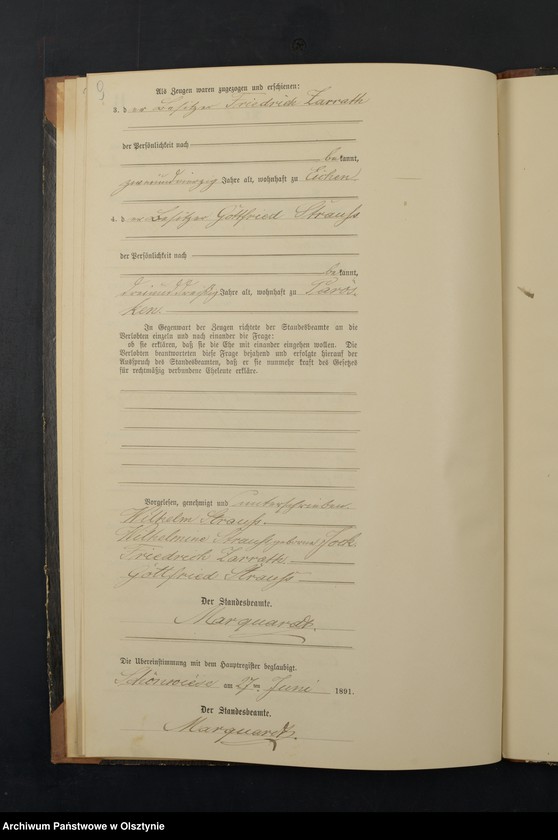 9
Als Zeugen waren zugezogen und erschienen:
3. der Besitzer Friedrich Zarrath
der Persönlichkeit nach
bekannt,
zweiundvierzig Jahre alt, wohnhaft zu Eichen.
4. der Besitzer Gottfried Strauss
der Persönlichkeit nach
bekannt,
dreiunddreißig Jahre alt, wohnhaft zu Parös-
ken.
In Gegenwart der Zeugen richtete der Standesbeamte an die
Verlobten einzeln und nach einander die Frage:
ob sie erklären, daß sie die Ehe mit einander eingehen wollen. Die
Verlobten beantworteten diese Frage bejahend und erfolgte hierauf der
Ausspruch des Standesbeamten, daß er sie nunmehr kraft des Gesetzes
für rechtmäßig verbundene Eheleute erkläre.
Vorgelesen, genehmigt und unterschrieben
Wilhelm Strauss.
Wilhelmine Strauss geborene
Friedrich Zarrath
Gottfried Strauss
Der Standesbeamte.
Marquardt.
Die Übereinstimmung mit dem Hauptregister beglaubigt.
Schönwiese am 27ten Juni 1891.
Der Standesbeamte.
Marquardt.
Archiwum Państwowe w Olsztynie